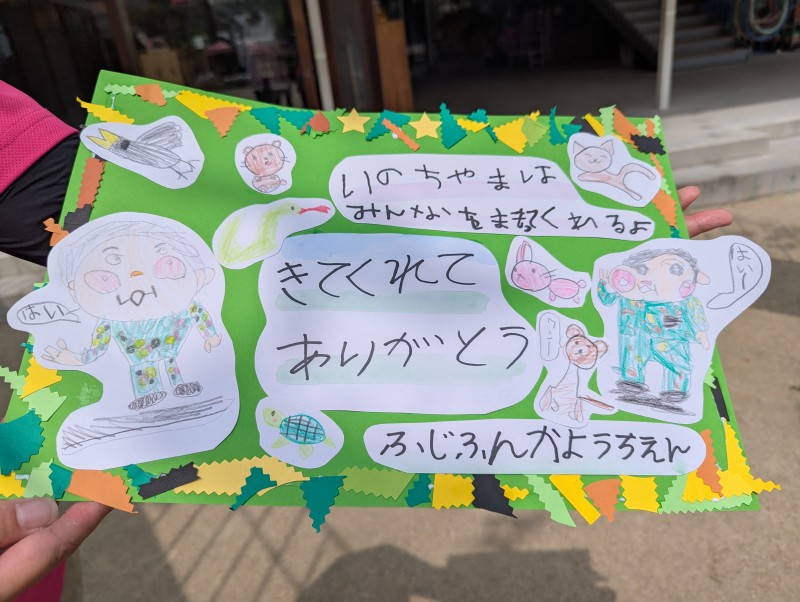 いのちやまは
みんなをまもてくれるよ
きてくれて
ありがとう
はい〜
はい!
ふじふんかようちえん